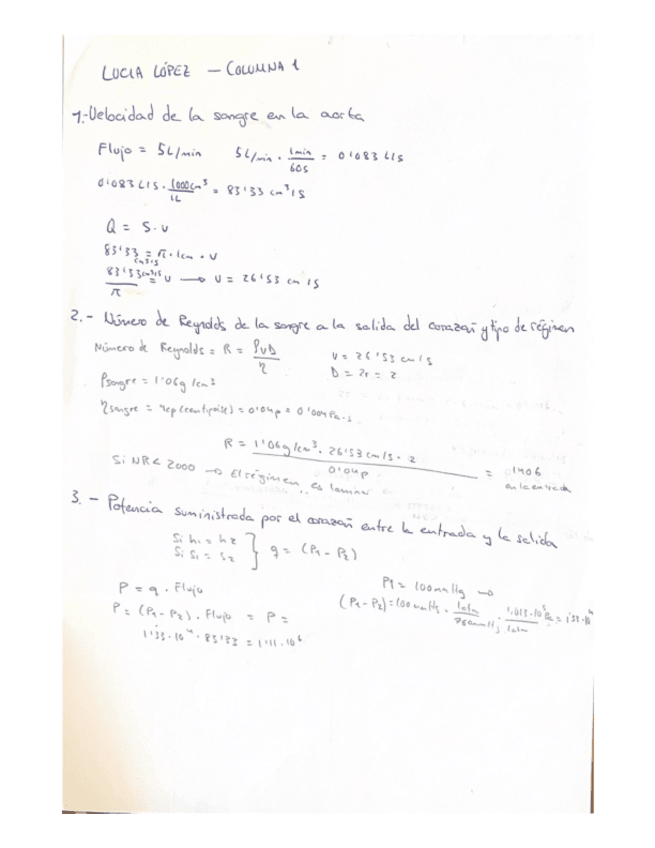 LUCIA LÓPEZ — COLUMNA 1
1.- Velocidad de la sangre en la aorta
Flujo = 5L/min 5L/min · 1min/60s = 0'083 L/S
0'083 L/S · 1000cm³/1L = 83'33 cm³/S
Q = S·v
83'33 cm³/s = π·1cm · v
83'33cm³/s / π = v → v = 26'53 cm/s
2.- Número de Reynolds de la sangre a la salida del corazón y tipo de régimen
Número de Reynolds = R = ρvD/η v = 26'53 cm/s
D = 2r = 2
ρsangre = 1'06g/cm³
ηsangre = 4cp (centipoise) = 0'04p = 0'004Pa·s
R = 1'06g/cm³ · 26'53 cm/s · 2 / 0'04p = 1406 en la entrada
Si NR < 2000 → El régimen es laminar
3.- Potencia suministrada por el corazón entre la entrada y la salida
Si h₁ = h₂
Si S₁ = S₂ } q = (P₁ - P₂)
P = q · Flujo P1 = 100mmHg →
P = (P₁ - P₂) · Flujo = P = (P₁-P₂) = 100mmHg · 1atm/760mmHg · 1,013·10⁵Pa/1atm = 1'33·10⁴
1'33·10⁴ · 83'33 = 1'11·10⁶